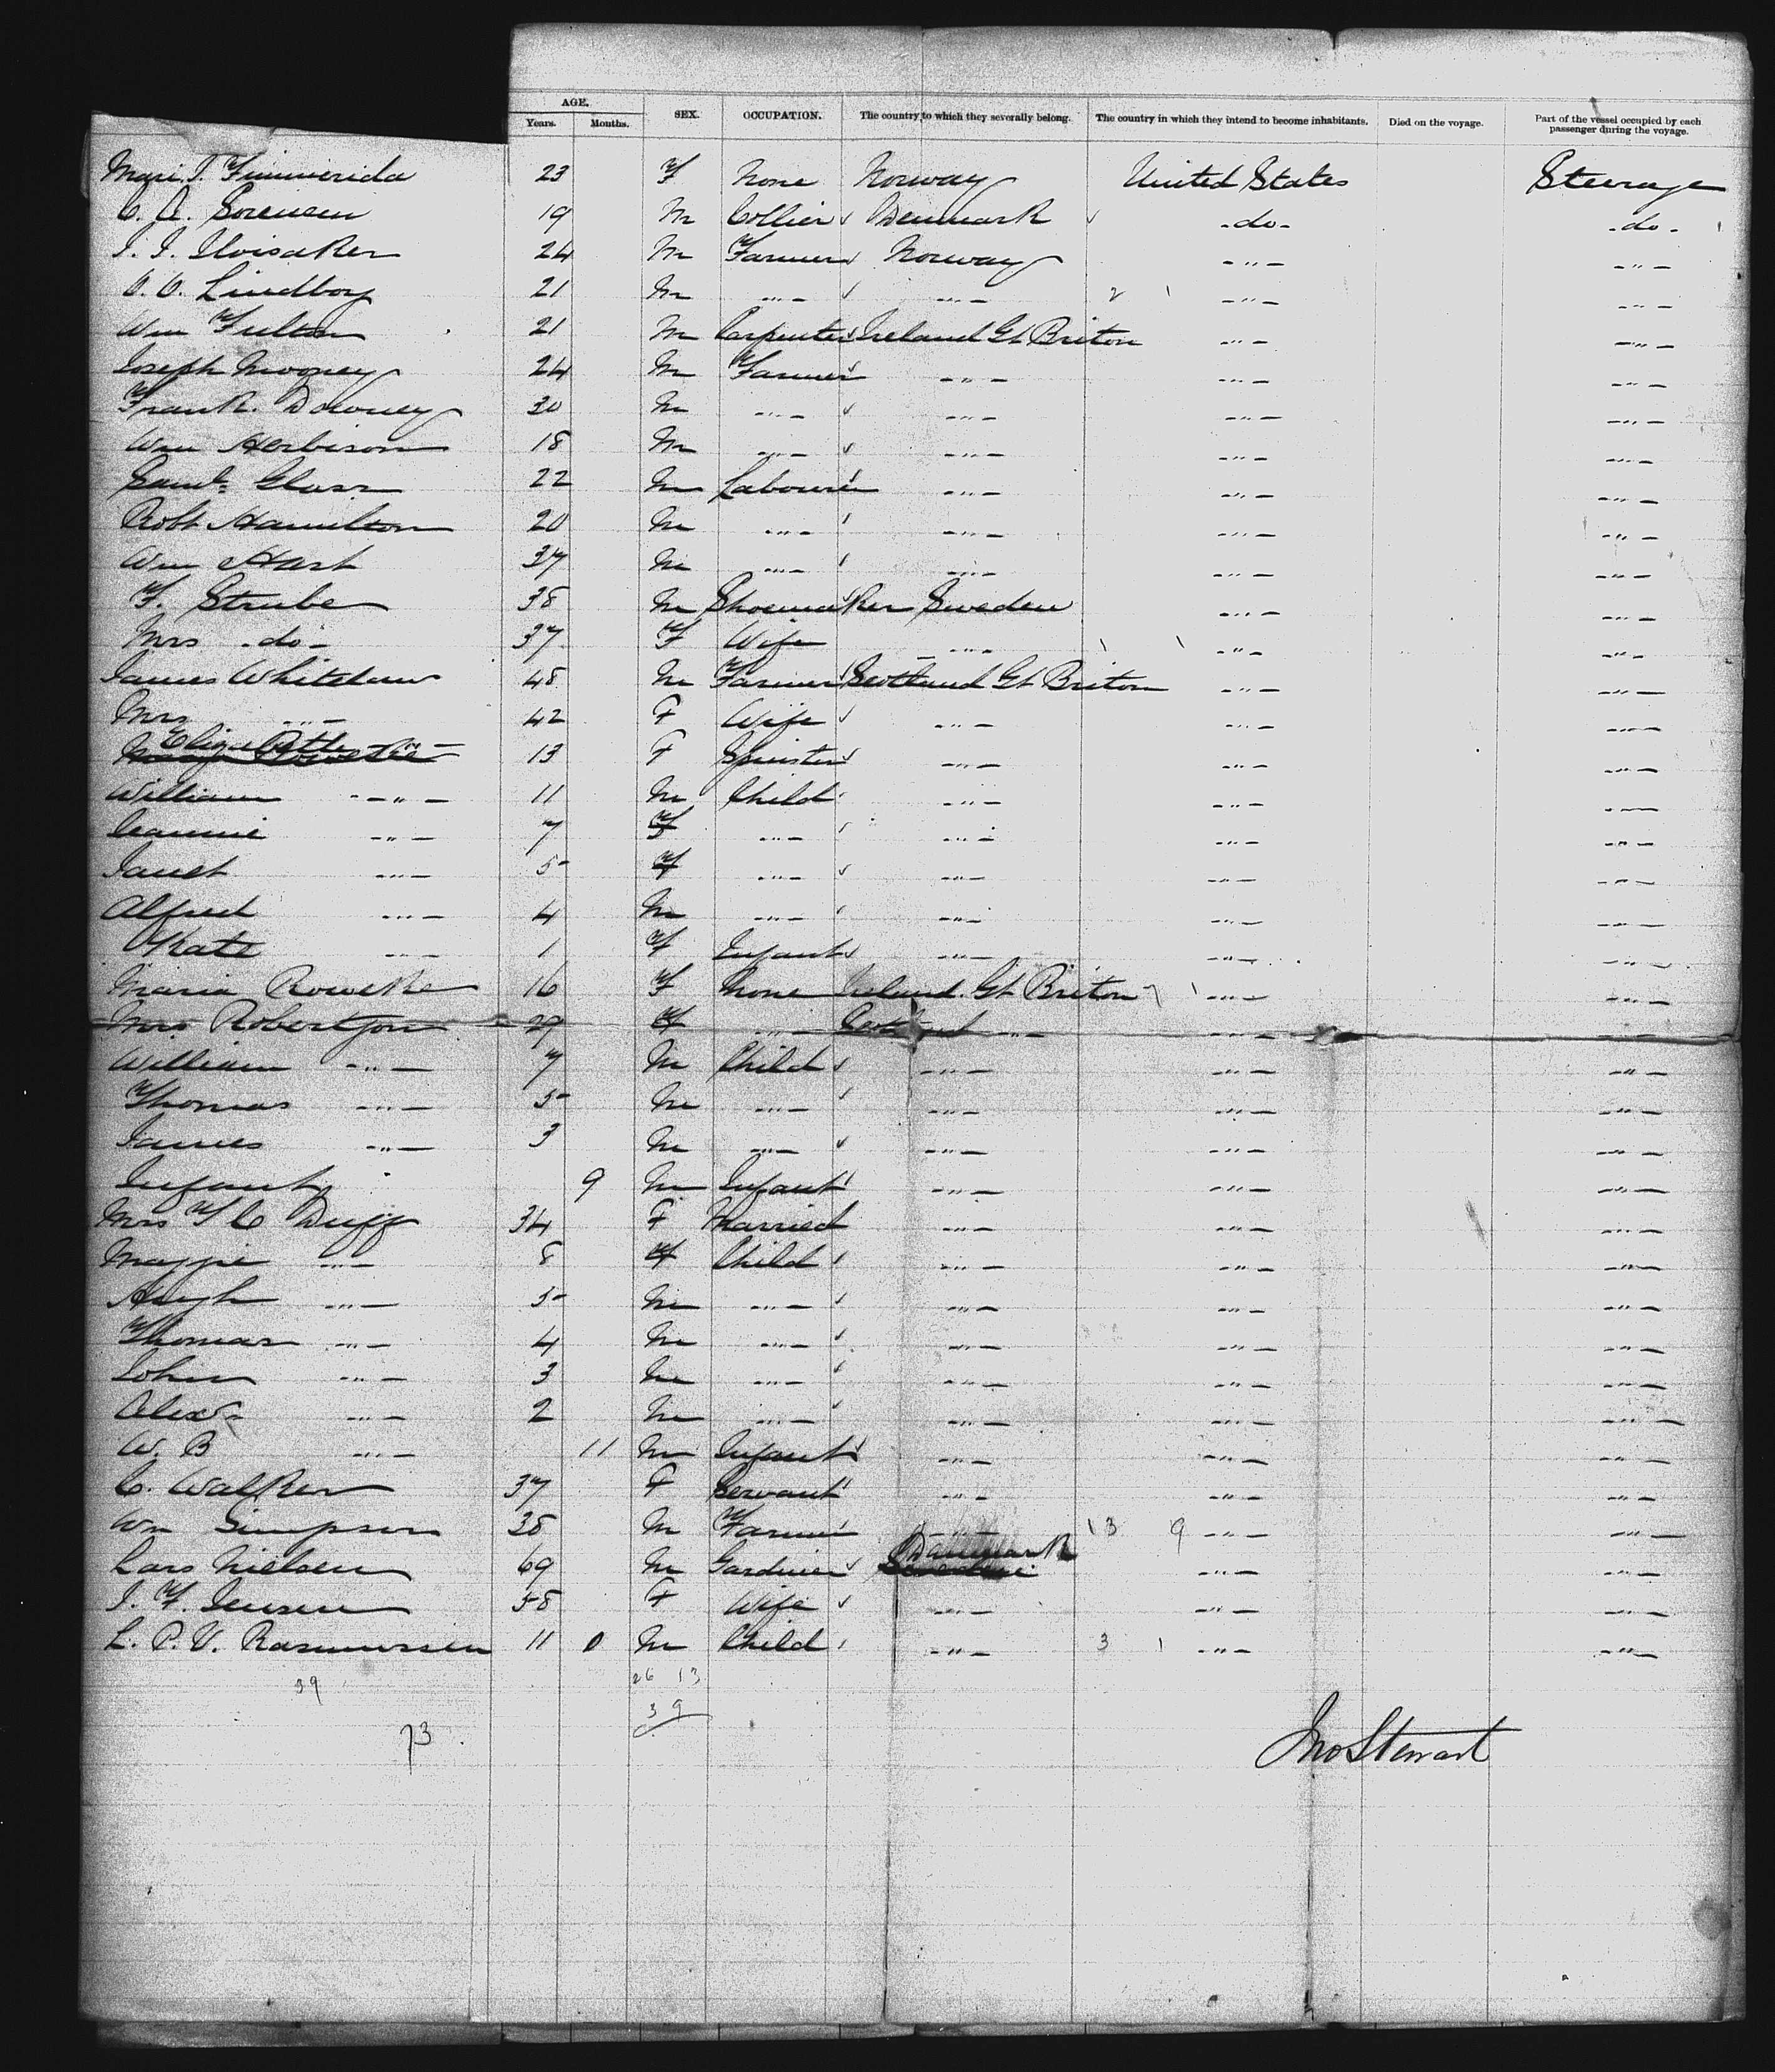 AGE.
Years. Months. SEX. OCCUPATION. The country to which they severally belong. The country in which they intend to become inhabitants. Died on the voyage. Part of the vessel occupied by each passenger during the voyage.
23 F None Norway United States Steerage
C. A. Sorensen 19 M Collier Denmark -do- -do-
24 M Farmer Norway -"- -"-
21 M -"- -"- 2 1 -"- -"-
Wm Fulton 21 M Carpenter Ireland Gt Briton -"- -"-
Joseph Mooney 24 M Farmer -"- -"- -"-
Frank. Downey 30 M -"- -"- -"- -"-
Wm Herbison 18 M -"- -"- -"- -"-
Saml. Glass 22 M Labourer -"- -"- -"-
Robt Hamilton 20 M -"- -"- -"- -"-
Wm Hart 37 M -"- -"- -"- -"-
F. Strube 38 M Shoemaker Sweden -"- -"-
Mrs -do- 37 F Wife -"- 1 1 -"- -"-
James Whitelaw 48 M Farmer Scotland Gt Briton -"- -"-
Mrs -"- 42 F Wife -"- -"- -"-
Elizabeth -"- 13 F Spinster -"- -"- -"-
William -"- 11 M Child -"- -"- -"-
-"- 7 F -"- -"- -"- -"-
Janet -"- 5 F -"- -"- -"- -"-
Alfred -"- 4 M -"- -"- -"- -"-
Kate -"- 1 F Infant -"- -"- -"-
Maria Rourke 16 F None Ireland Gt Briton 7 1 -"- -"-
Mrs Robertson 29 F -"- Scotland -"- -"- -"-
William -"- 7 M Child -"- -"- -"-
Thomas -"- 5 M -"- -"- -"- -"-
James -"- 3 M -"- -"- -"- -"-
Infant 9 M Infant -"- -"- -"-
Mrs T C Duff 34 F Married -"- -"- -"-
Maggie -"- 8 F Child -"- -"- -"-
Hugh -"- 5 M -"- -"- -"- -"-
Thomas -"- 4 M -"- -"- -"- -"-
John -"- 3 M -"- -"- -"- -"-
Alexr -"- 2 M -"- -"- -"- -"-
W. B -"- 11 M Infant -"- -"- -"-
C. Walker 37 F Servant -"- -"- -"-
Wm Simpson 38 M Farmer -"- 13 9 -"- -"-
Lars Nielsen 69 M Gardiner Danmark -"- -"-
J. F. Jensen 58 F Wife -"- -"- -"-
L. P. V. Rasmussen 11 0 M Child -"- 3 1 -"- -"-
39 26 13
39
73 Jno Stewart